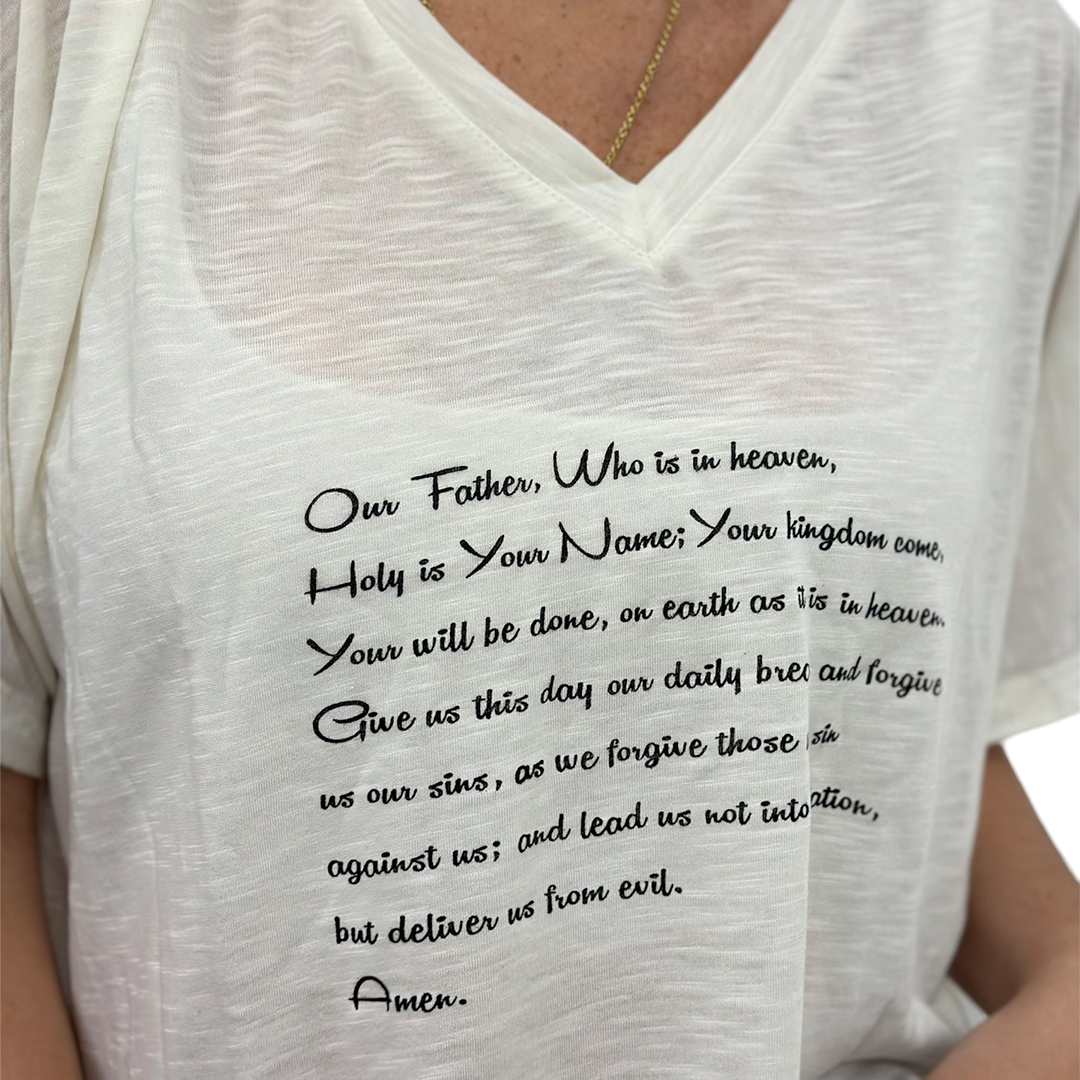 Our Father, Who is in heaven,
Holy is Your Name; Your kingdom come,
Your will be done, on earth as it is in heaven.
Give us this day our daily and forgive
us our sins, as we forgive those sin
against us; and lead us not into
but deliver us from evil.
Amen.